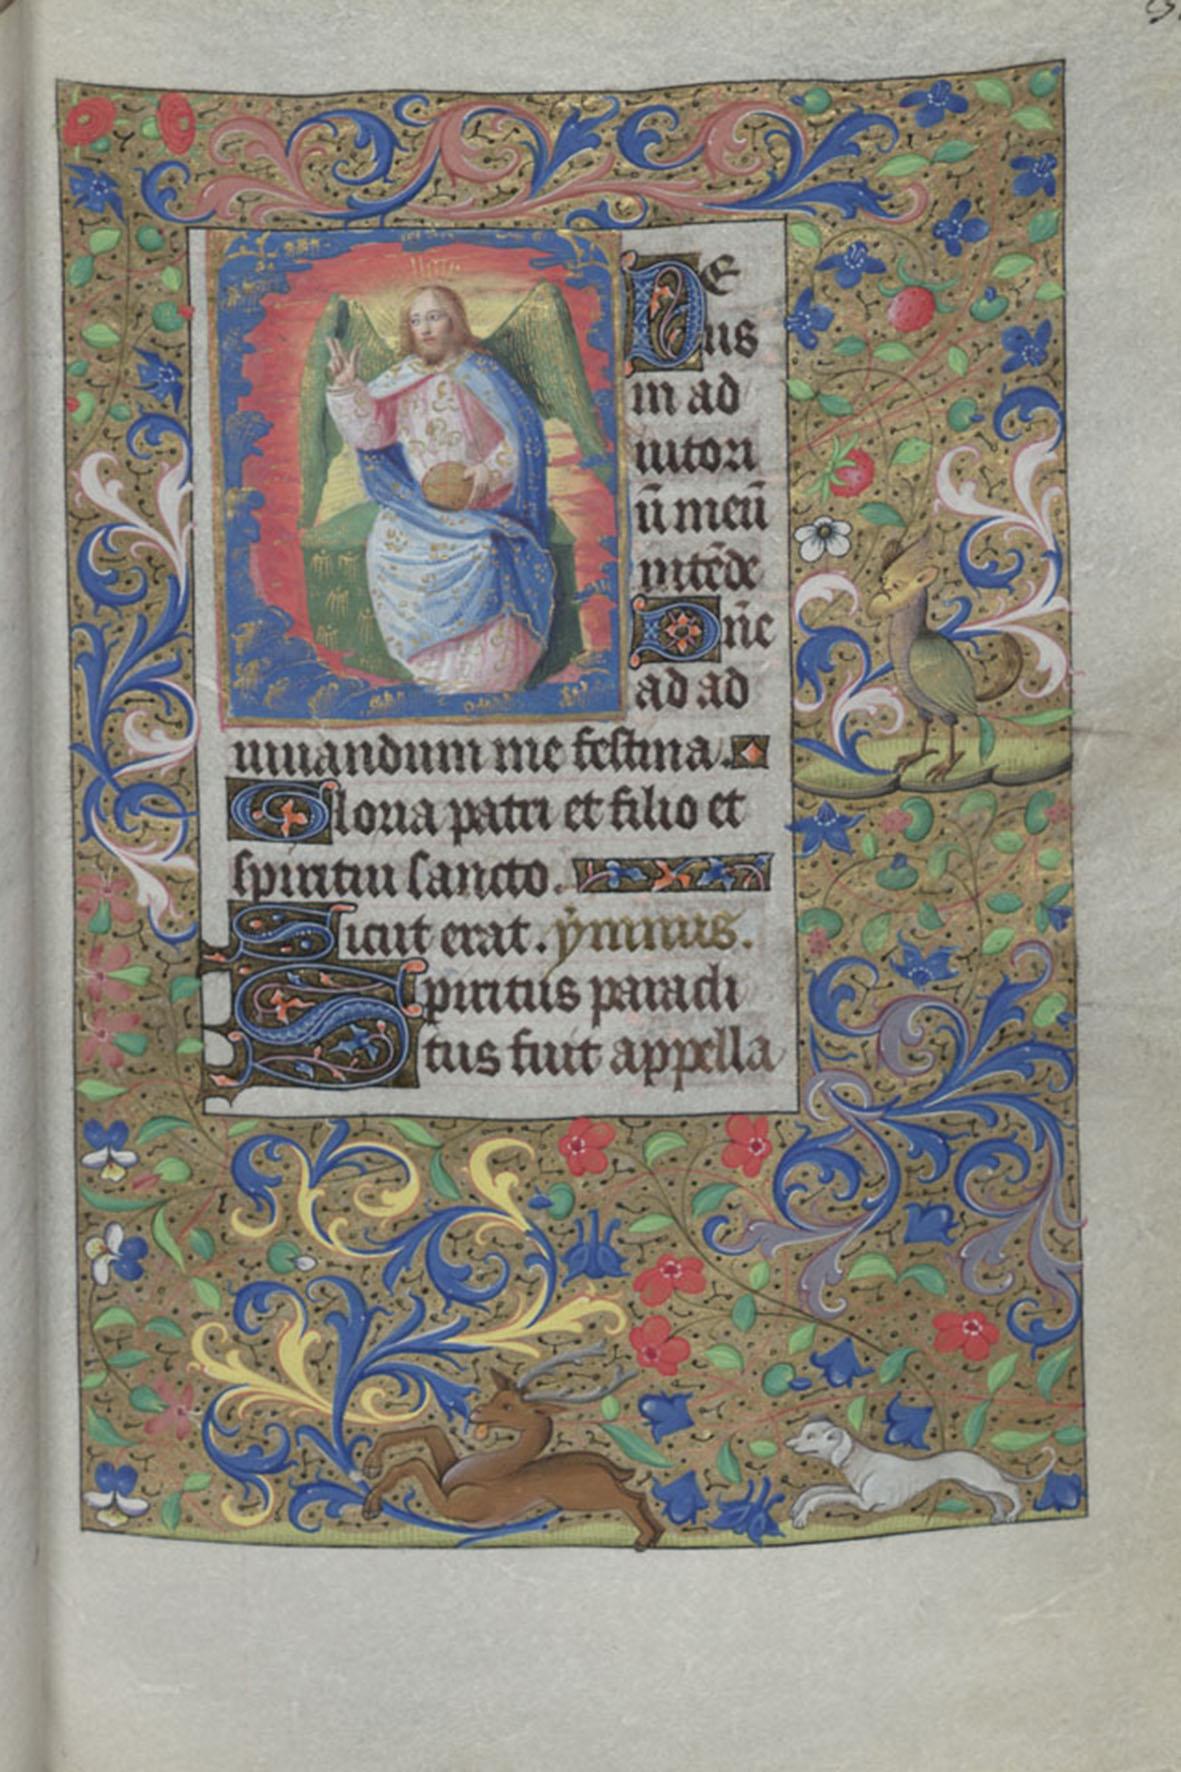 De
us
in ad
iutori
ū meū
intēde
Dñe
ad ad
iuuandum me festina.
Gloria patri et filio et
spiritui sancto.
Sicut erat. ẏmnus.
Spiritus paracli
tus fuit appella